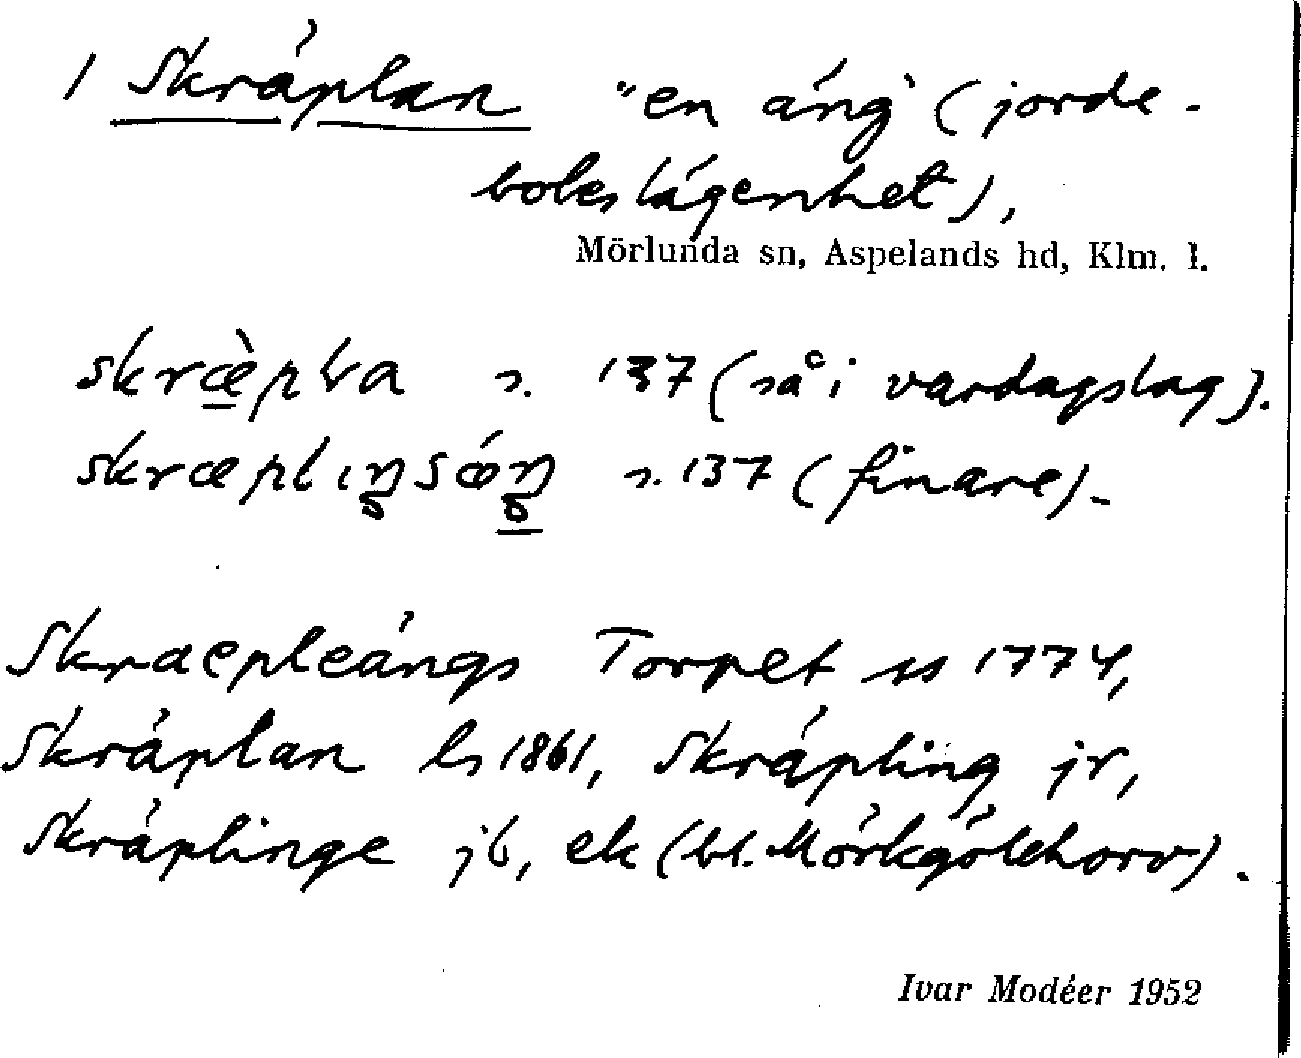 1 Skräplan "en äng" (jorde-
bokslägenhet),
Mörlunda sn, Aspelands hd, Klm. l.
skræ̀pla s. 137 (så i vardagslag).
s. 137 (finare).
Skraepleängs Torpet ss 1774,
Skräplan ls 1861, Skräpling jr,
Skräplinge jb, ek (bl. Mörkgölehorv).
Ivar Modéer 1952